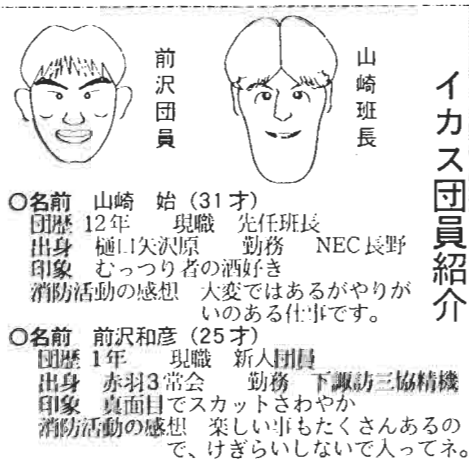 イカス団員紹介
山崎班長
前沢団員
○名前 山崎 始(31才)
団歴 12年 現職 先任班長
出身 樋口矢沢原 勤務 NEC長野
印象 むっつり者の酒好き
消防活動の感想 大変ではあるがやりが
いのある仕事です。
○名前 前沢和彦(25才)
団歴 1年 現職 新人団員
出身 赤羽3常会 勤務 下諏訪三協精機
印象 真面目でスカットさわやか
消防活動の感想 楽しい事もたくさんあるの
で、けぎらいしないで入ってネ。